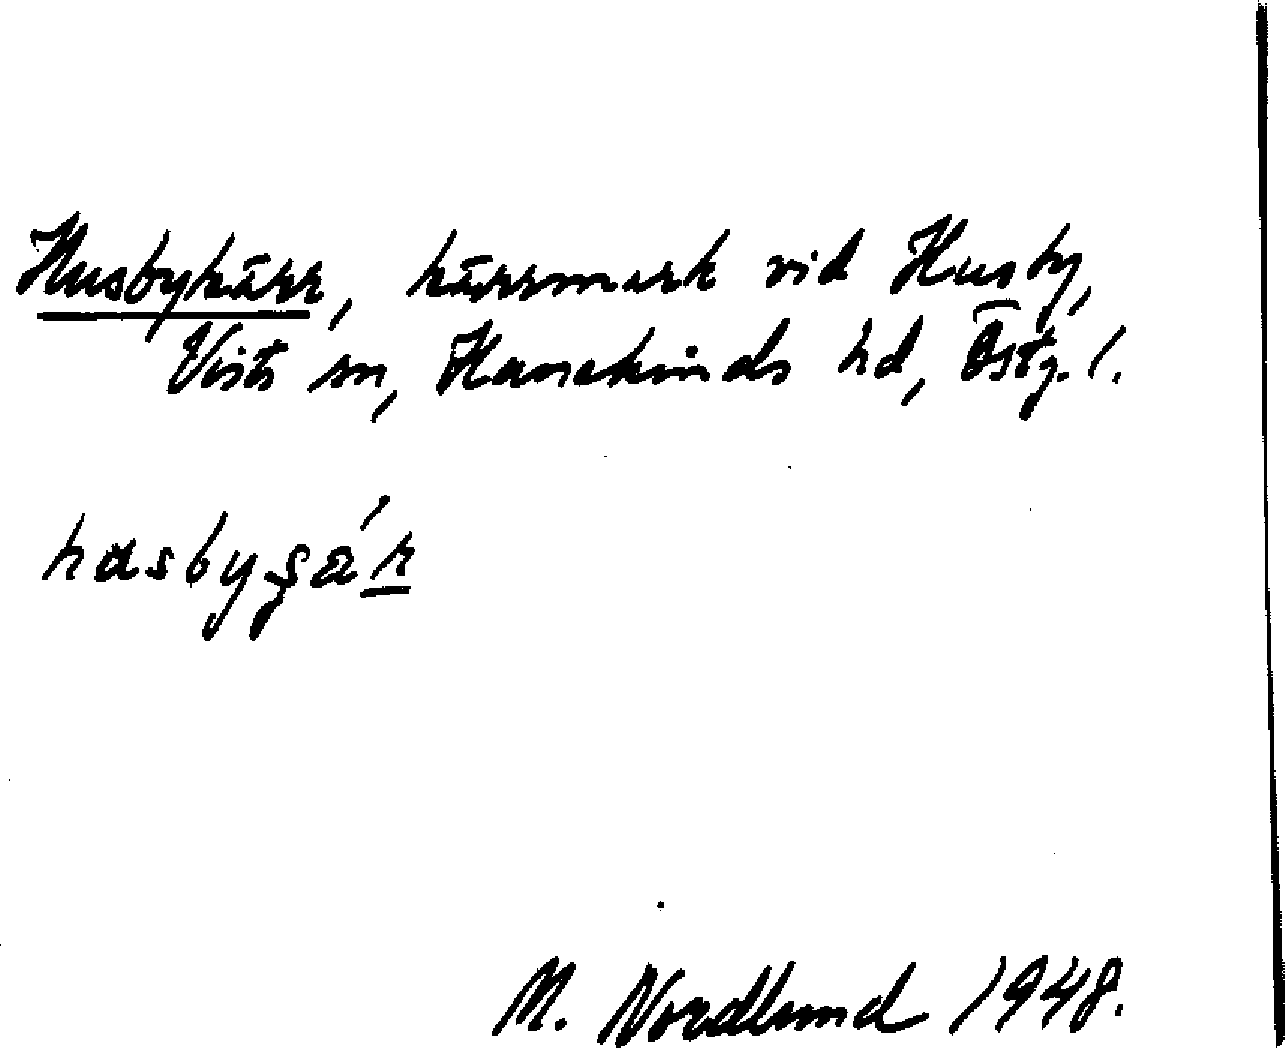 Husbykärr, kärrmark vid Husby,
Vists sn, Hanekinds hd, Östg. l.
hasbyɕá̱r
M. Nordlund 1948.